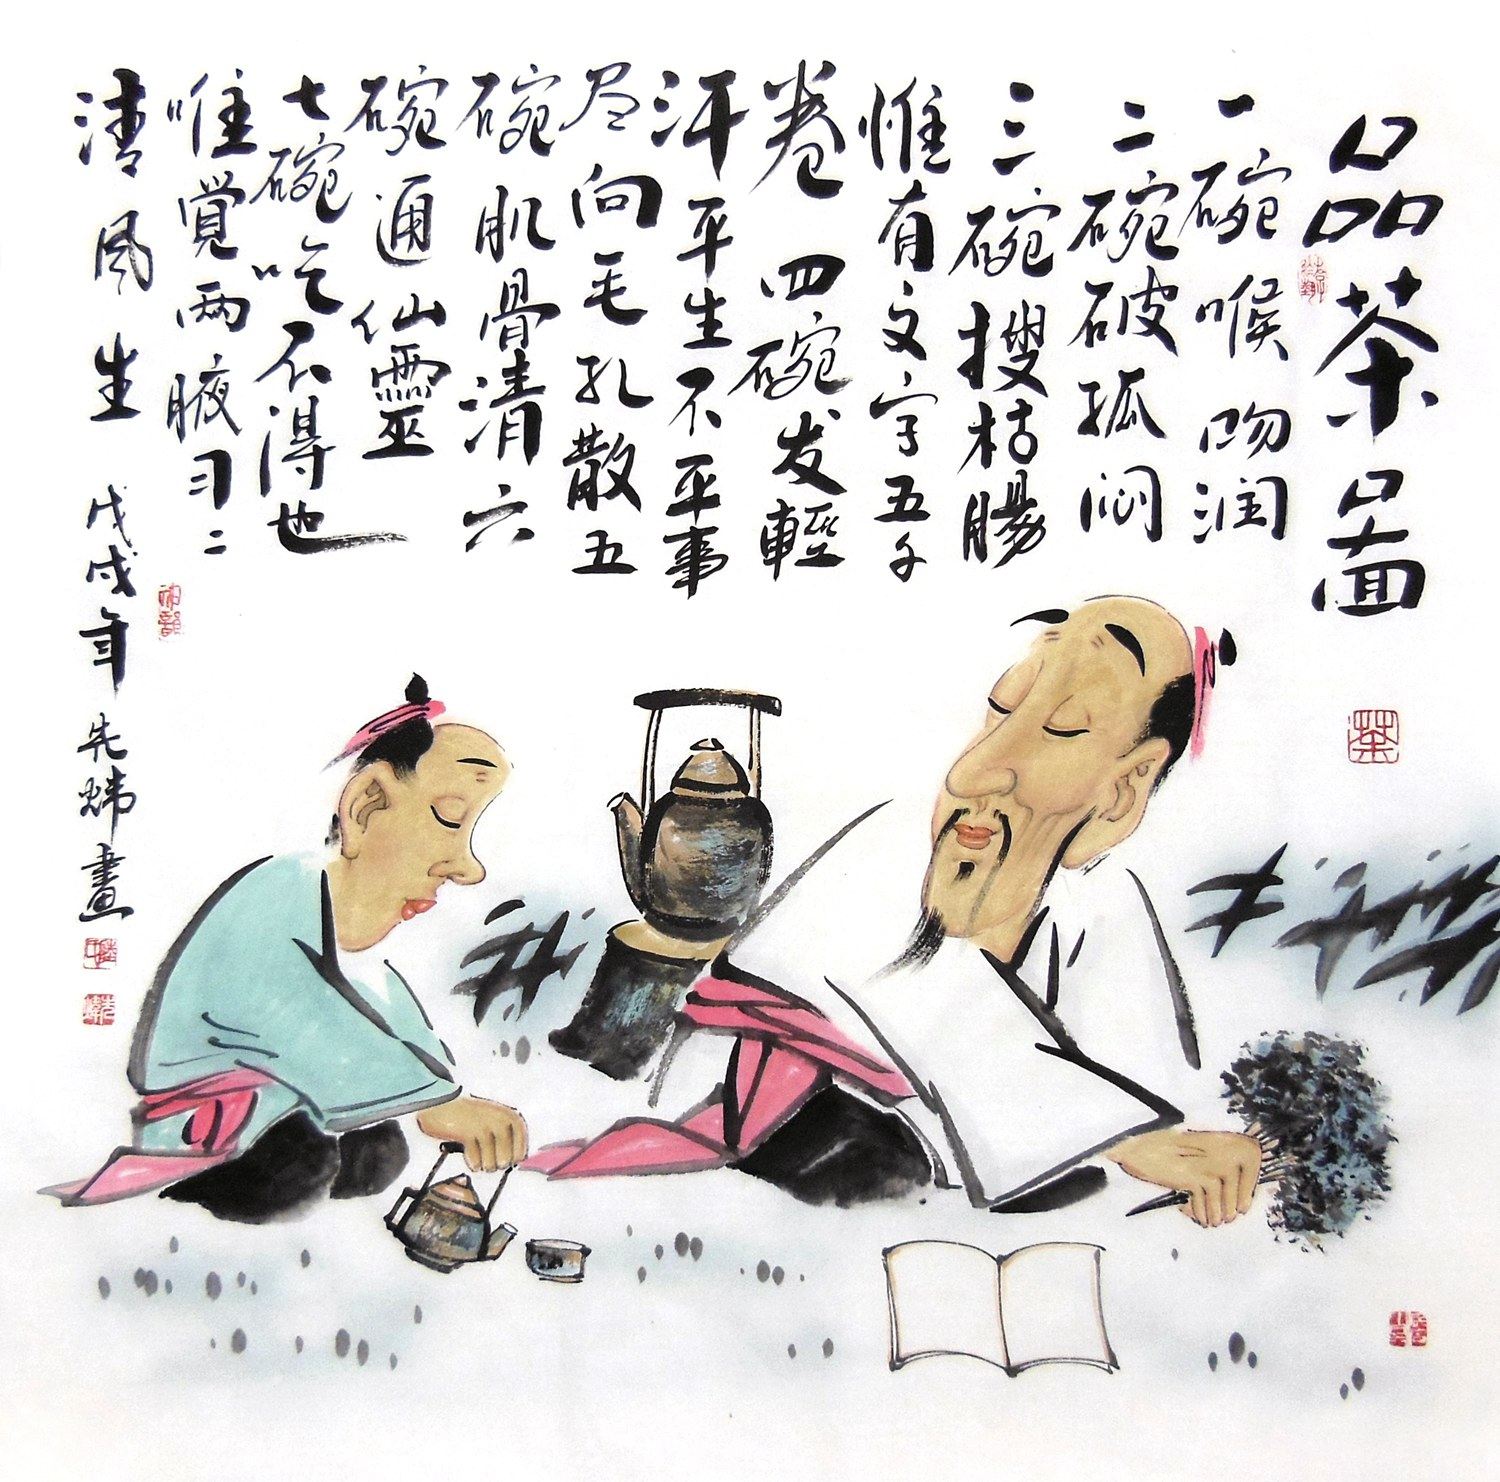 品茶啚
一碗喉吻润
二碗破孤闷
三碗搜枯腸
惟有文字五千
卷 四碗发輕
汗平生不平事
尽向毛孔散五
碗肌骨清六
碗通仙靈
七碗吃不得也
唯覺两腋习二
清風生 戊戌年先炜畫